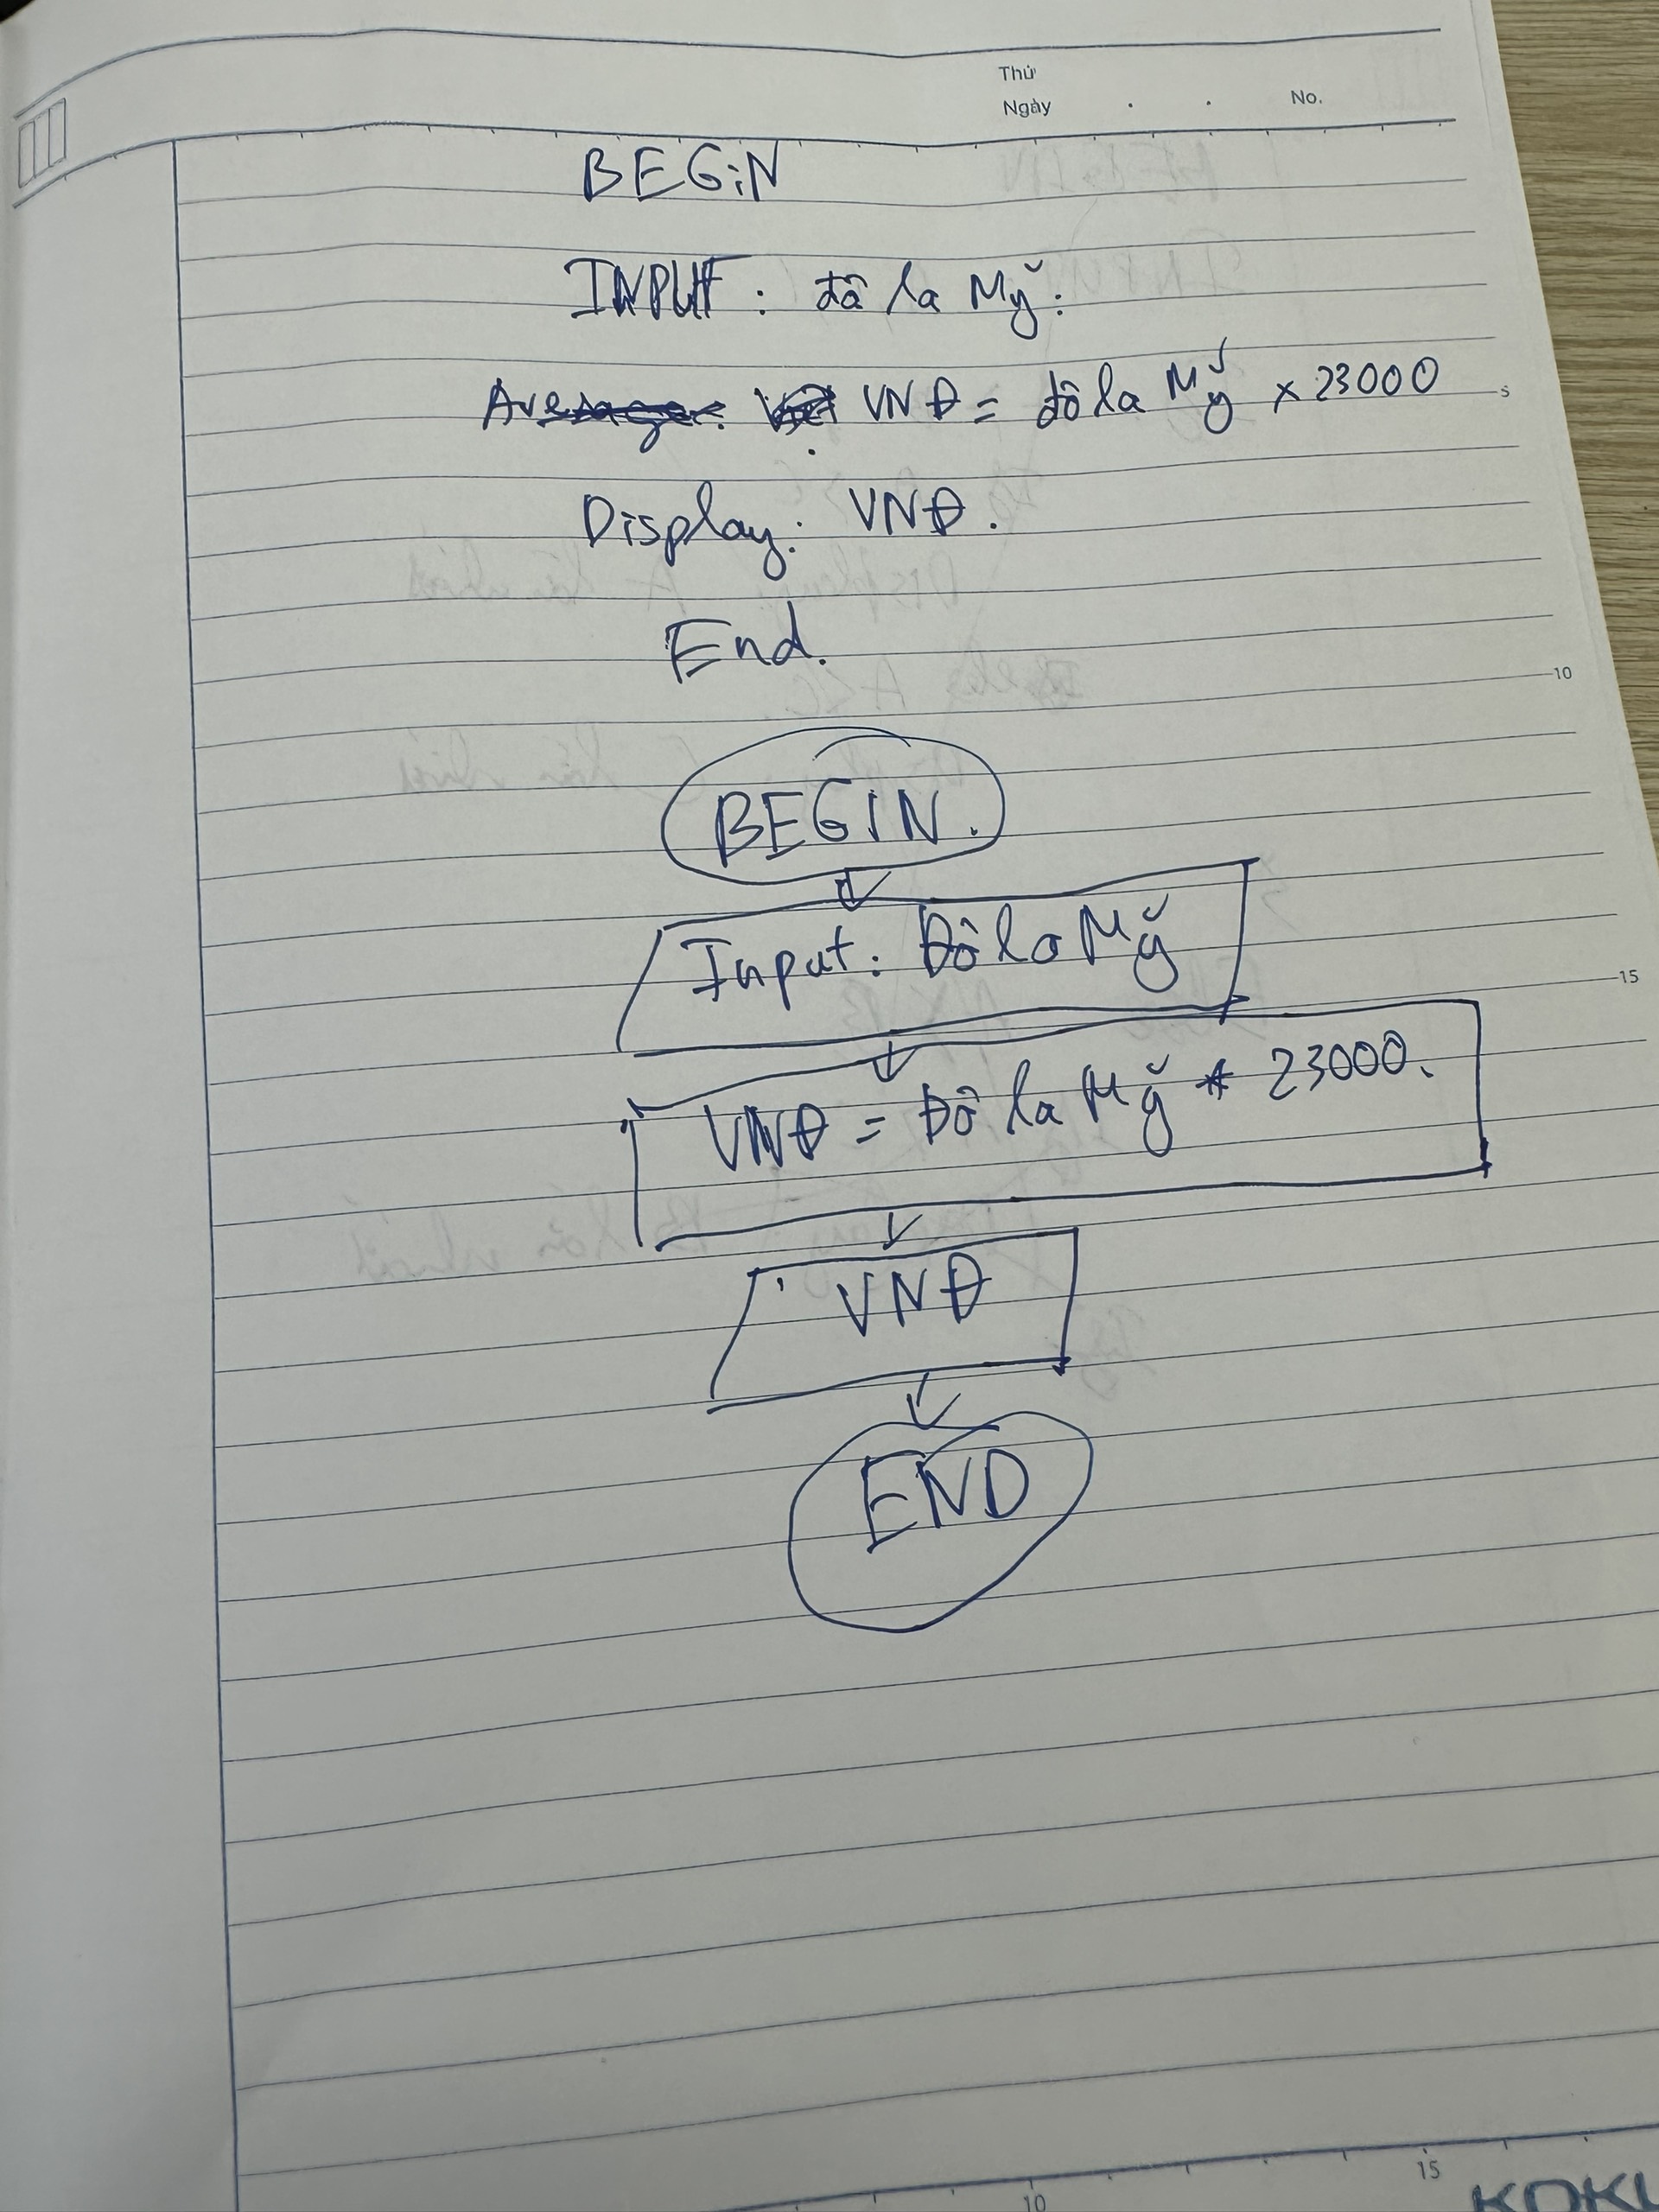 Thứ
Ngày . . No.
BEGiN
INPUT : đô la Mỹ.
VNĐ = đô la Mỹ × 23000
5
Display: VNĐ.
End.
10
BEGIN.
Input: Đô la Mỹ
15
VNĐ = Đô la Mỹ * 23000.
VNĐ
END
10 15